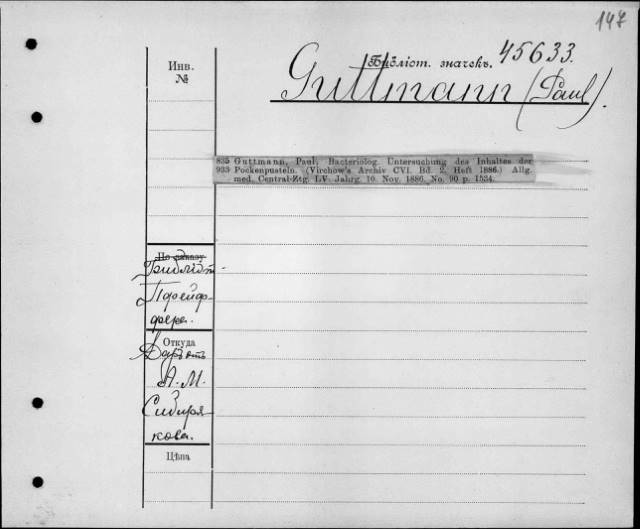 147
Инв.
№
Бібліот. значекъ. 45633.
Guttmann (Paul).
835 Guttmann, Paul, Bacteriolog. Untersuchung des Inhaltes der
935 Pockenpusteln. (Virchow's Archiv CVI. Bd. 2. Heft 1886.) Allg.
med. Central-Ztg. LV. Jahrg. 10. Nov. 1886. No. 90 p. 1534.
По заказу
Библіот.
Пфейф-
фера.
Откуда
Даръ
А. М.
Сибиря-
кова.
Цѣна